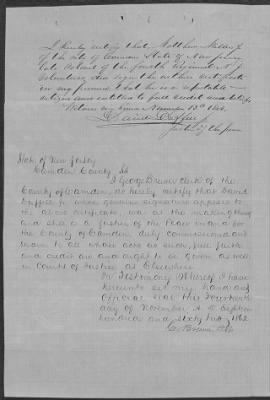 I hereby certify that Matthew
of the city of Camden State of New Jersey
late of the fourth Regiment
Volunteers did sign the within certificate
in my presence & that he is a reputable
citizen and entitled to full credit and belief
Witness my hand November 13th 1862
David
Justice of the peace
State of New Jersey
Camden County SS
I George Brewer clerk of the
County of Camden, do hereby certify that David
whose genuine signature appears to
the above certificate, was at the making thereof
and still is a Justice of the Peace in and for
the County of Camden, duly commissioned and
sworn to all whose acts as such, full faith
and credit are and ought to be given as well
in Courts of Justice as Elsewhere
In Testimony Whereof I have
hereunto set my hand and
official seal this fourteenth
day of November A D Eighteen
hundred and sixty two 1862
G Brewer Clk